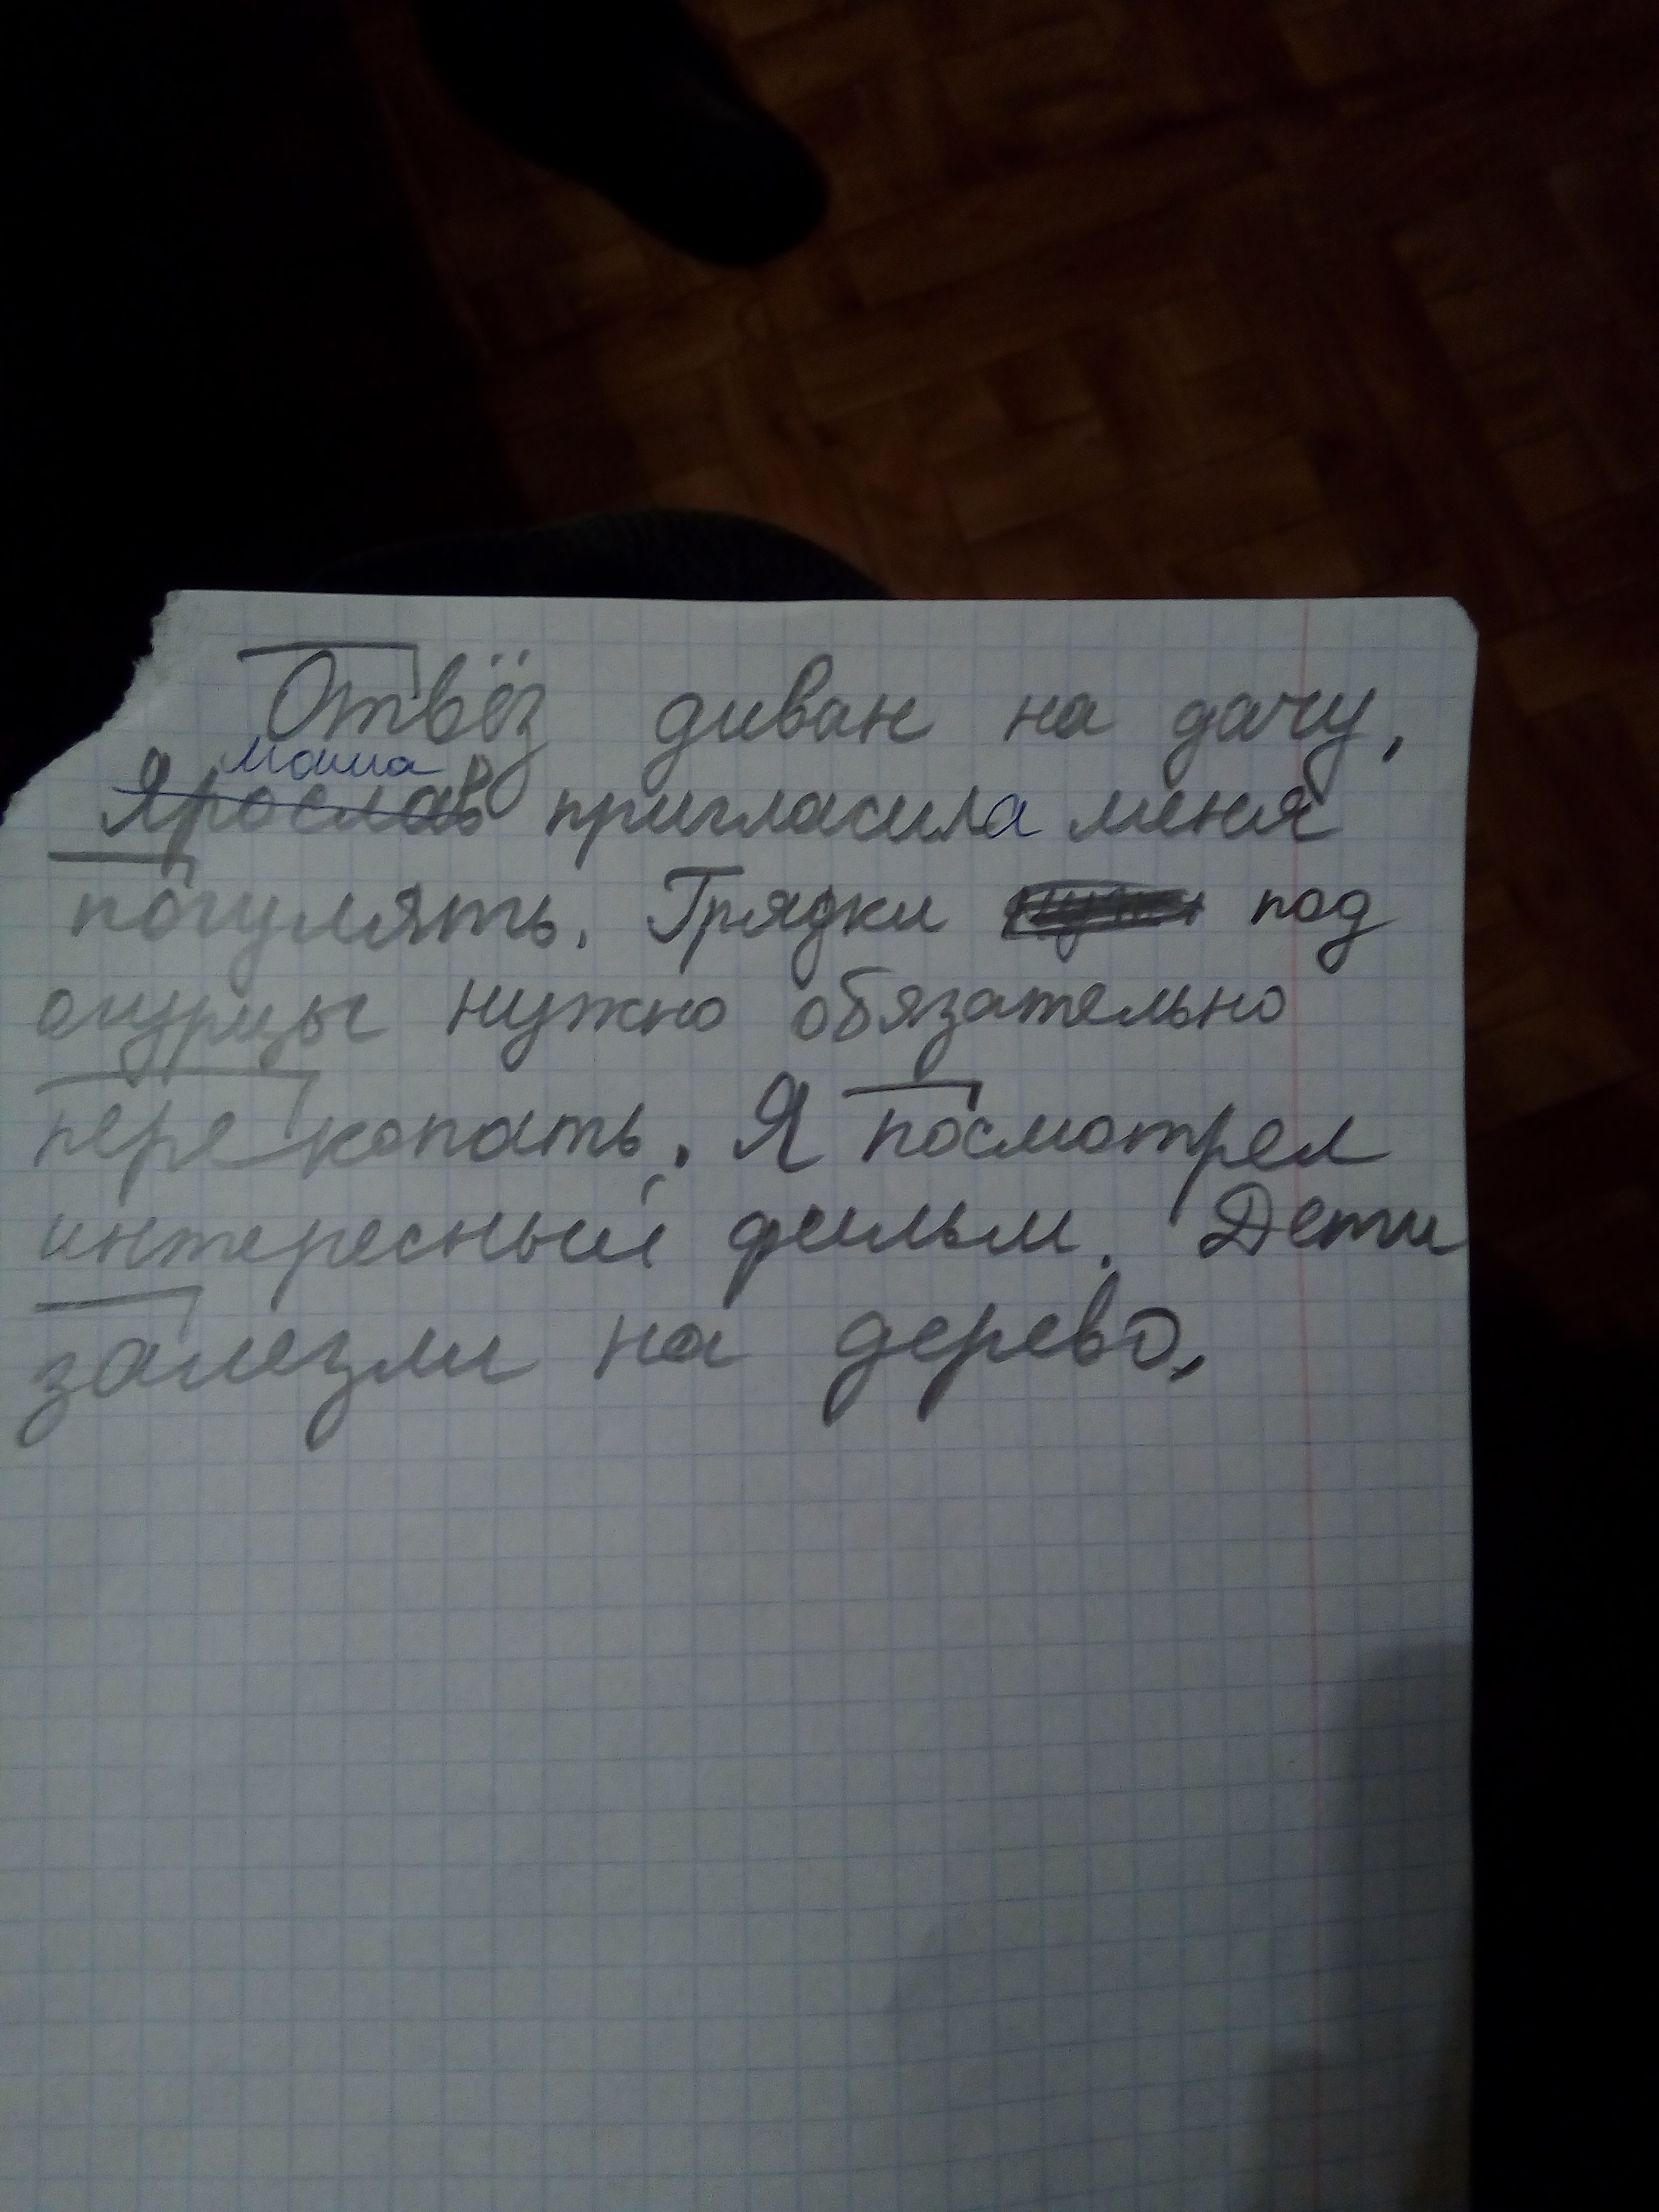 Отвёз диван на дачу.
маша
Ярослав пригласила меня
погулять. Грядки под
огурцы нужно обязательно
перекопать. Я посмотрел
интересный фильм. Дети
залезли на дерево.